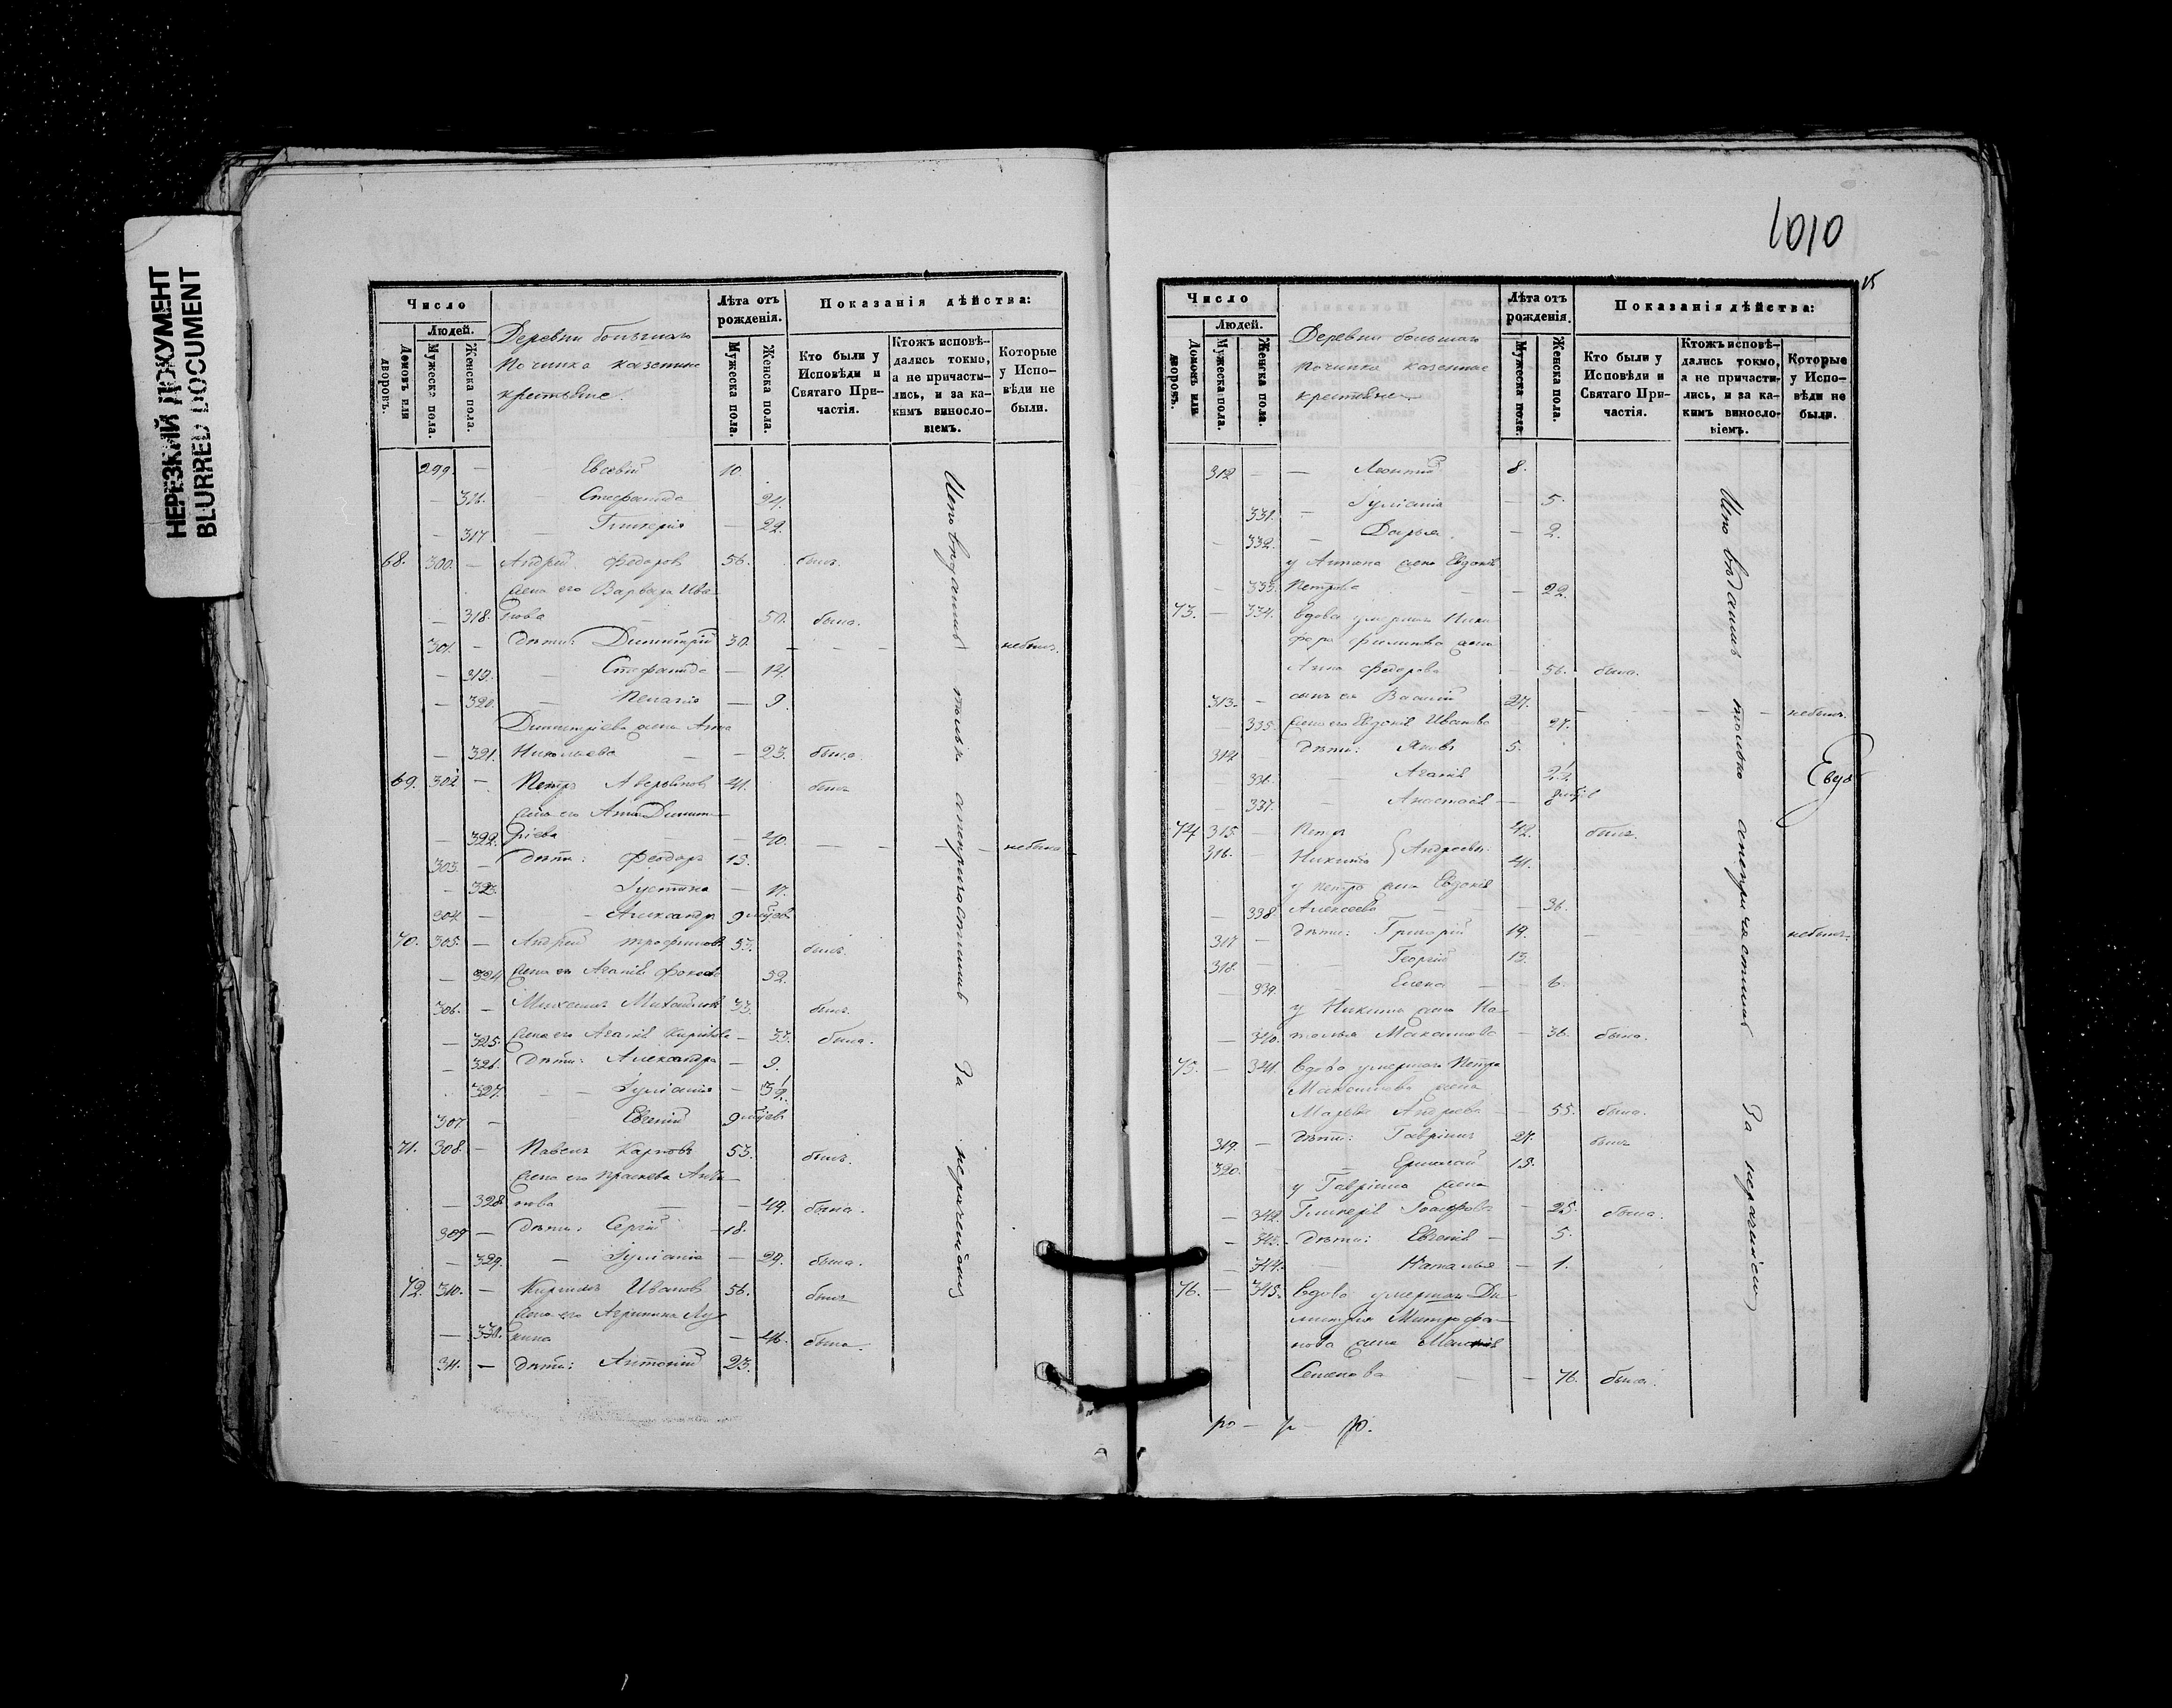 НЕРЕЗКИЙ ДОКУМЕНТ
BLURRED DOCUMENT
Число
Людей.
Домовъ или дворовъ.
Мужеска пола.
Женска пола.
Деревни большаго
починка казенные
крестьяне.
Лѣта отъ рожденія.
Мужеска пола.
Женска пола.
Показанія дѣйства:
Кто были у Исповѣди и Святаго Причастія.
Ктожъ исповѣдались токмо, а не причастились, и за какимъ винословіемъ.
Которые у Исповѣди не были.
299. — Евсевій 10.
— 316. — Стефанида 24.
— 317 — Гликерія — 22.
68. 300. — Андрей Федоров 56. былъ.
жена его Варвара Ива-
— 318. нова 50. была.
301. — дѣти: Димитрій 30. — — — небылъ.
— 319. — Стефанида — 14.
— 320. — Пелагія — 9.
Димитріева жена Анна
— 321. Николаева — 23. была.
69. 302 — Петръ Аверьянов 41. былъ
жена его Анна Димит-
— 322. ріева — 40. — — — — небыла
303. — дѣти: Феодоръ 15.
— 323. Іустина — 17.
304. — — Александръ 9 мѣсяцев
70. 305. — Андрей Трофимовъ 53. былъ.
— 324 жена ег Агафія Фокова 52.
306. — Михаилъ Михайловъ 33. былъ.
— 325. жена его Агафія Кирилова — 33. была.
— 326. дѣти: Александра — 9.
327. — Іуліанія — 3½.
307. — Евгеній 9 мѣсяцев
71. 308. — Павелъ Карповъ 53. былъ.
жена его Прасковья Анти-
— 328 пова — — 49. была.
309 — дѣти: Сергій 18.
— 329. — Іуліанія — 24. была.
72. 310. — Кириллъ Иванов 56. былъ
жена его Агрипина Лу-
— 330. кина — 46. была.
311. — дѣти: Антоній 23.
Исповѣдались только а непричастились За нераченіемъ
1010
15
Число
Людей.
Домовъ или дворовъ.
Мужеска пола.
Женска пола.
Деревни большаго
починка казенные
крестьяне
Лѣта отъ рожденія.
Мужеска пола.
Женска пола.
Показанія дѣйства:
Кто были у Исповѣди и Святаго Причастія.
Ктожъ исповѣдались токмо, а не причастились, и за какимъ винословіемъ.
Которые у Исповѣди не были.
312 — — Леонтій 8.
331. — Іуліанія — 5.
— 332. — Дарья — 2.
у Антона жена Евдокія
— 333. Петрова — — 22.
73. — 334. Вдова умершаго Ники-
фора Филипова жена
Анна Федорова — 56. была.
313. — сынъ ея Василій 27. — — — — небылъ.
— 335. жена его Евдокія Иванова — 27.
314 дѣти: Яковъ 5.
— 336. — Агафія 2½
— 337. — Анастасія — 8 мѣсяц
74 315. — Петръ 42. былъ.
316. — Никита } Андреевы. 41.
у Петра жена Евдокія
— 338 Алексеева — — 36.
317 — дѣти: Григорій 19. — — небылъ.
318. — — Георгій 13.
339. — Елена — 6.
у Никиты жена На-
— 340. талья Максимова — 36. была.
75. — 341. Вдова умершаго Петра
Максимова жена
Марья Андреева — — 55. была.
319. — дѣти: Гавріилъ 27. былъ
320. — Ермолай 15.
у Гавріила жена
— 342. Гликерія — 25. была.
— 343. дѣти: Евгенія — 5.
— 344. — Наталья — 1.
76. — 345. Вдова умершаго Ди-
митрія Митрофа-
нова жена
Семенова — — 76. была.
Исповѣдались только а непричастились За нераченіемъ